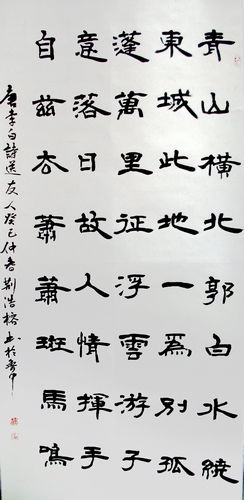 青山橫北郭白水繞
東城此地一爲別孤
蓬萬里征浮雲游子
意落日故人情揮手
自茲去蕭蕭斑馬鳴
唐李白詩送友人癸巳仲春荆浩